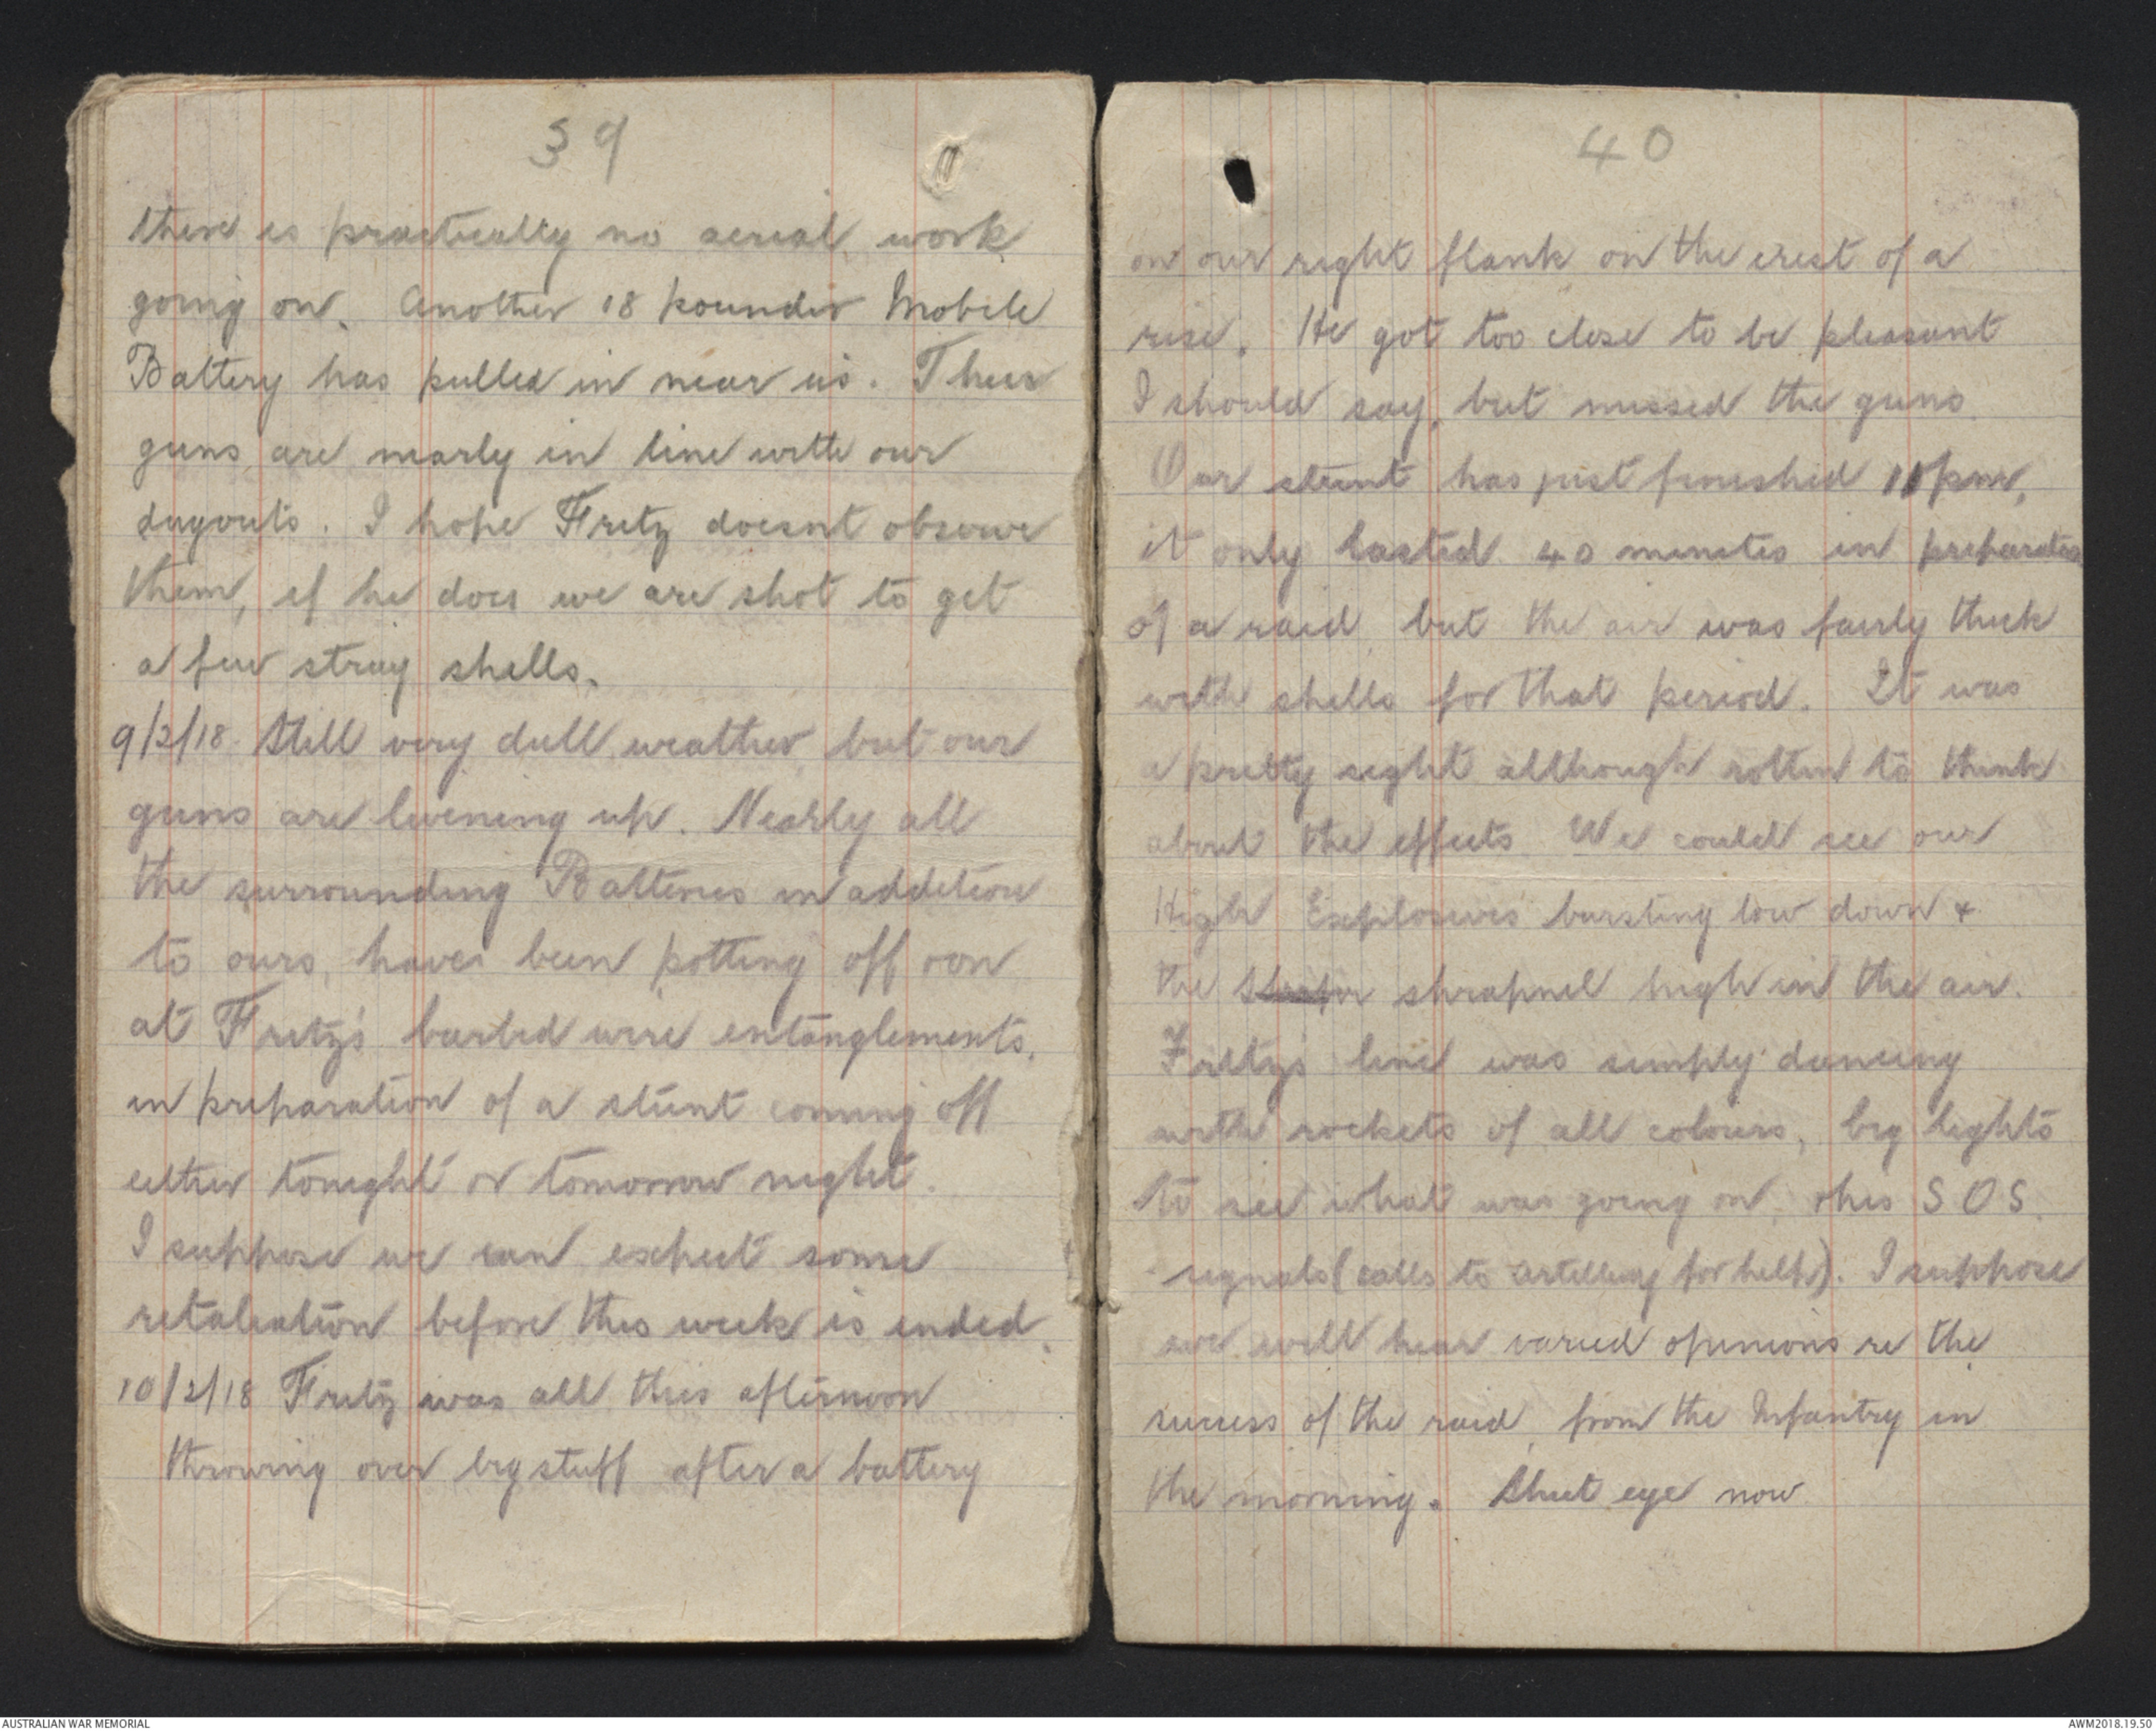 39
there is practically no aerial work
going on. Another 18 pounder Mobile
Battery has pulled in near us. Their
guns are nearly in line with our
dugouts. I hope Fritz doesnt observe
them, if he does we are shot to get
a few stray shells.
9/2/18 Still very dull weather but our
guns are livening up. Nearly all
the surrounding Batteries in addition
to ours, have been potting off
at Fritz's barbed wire entanglements,
in preparation of a stunt coming off
either tonight or tomorrow night.
I suppose we can expect some
retaliation before this week is ended.
10/2/18 Fritz was all this afternoon
throwing over big stuff after a battery
40
on our right flank on the crest of a
rise. He got too close to be pleasant
I should say, but missed the guns.
Our stunt has just finished 11pm,
it only lasted 40 minutes in preparation
of a raid but the air was fairly thick
with shells for that period. It was
a pretty sight although rotten to think
about the effects. We could see our
High Explosives bursting low down &
the shrapnel high in the air.
Fritz's line was simply dancing
with rockets of all colours, big lights
to see what was going on, & his S O S
signals (calls to artillery for help). I suppose
we will hear varied opinions re the
success of the raid, from the Infantry in
the morning. Shut eye now
AUSTRALIAN WAR MEMORIAL
AWM2018.19.50